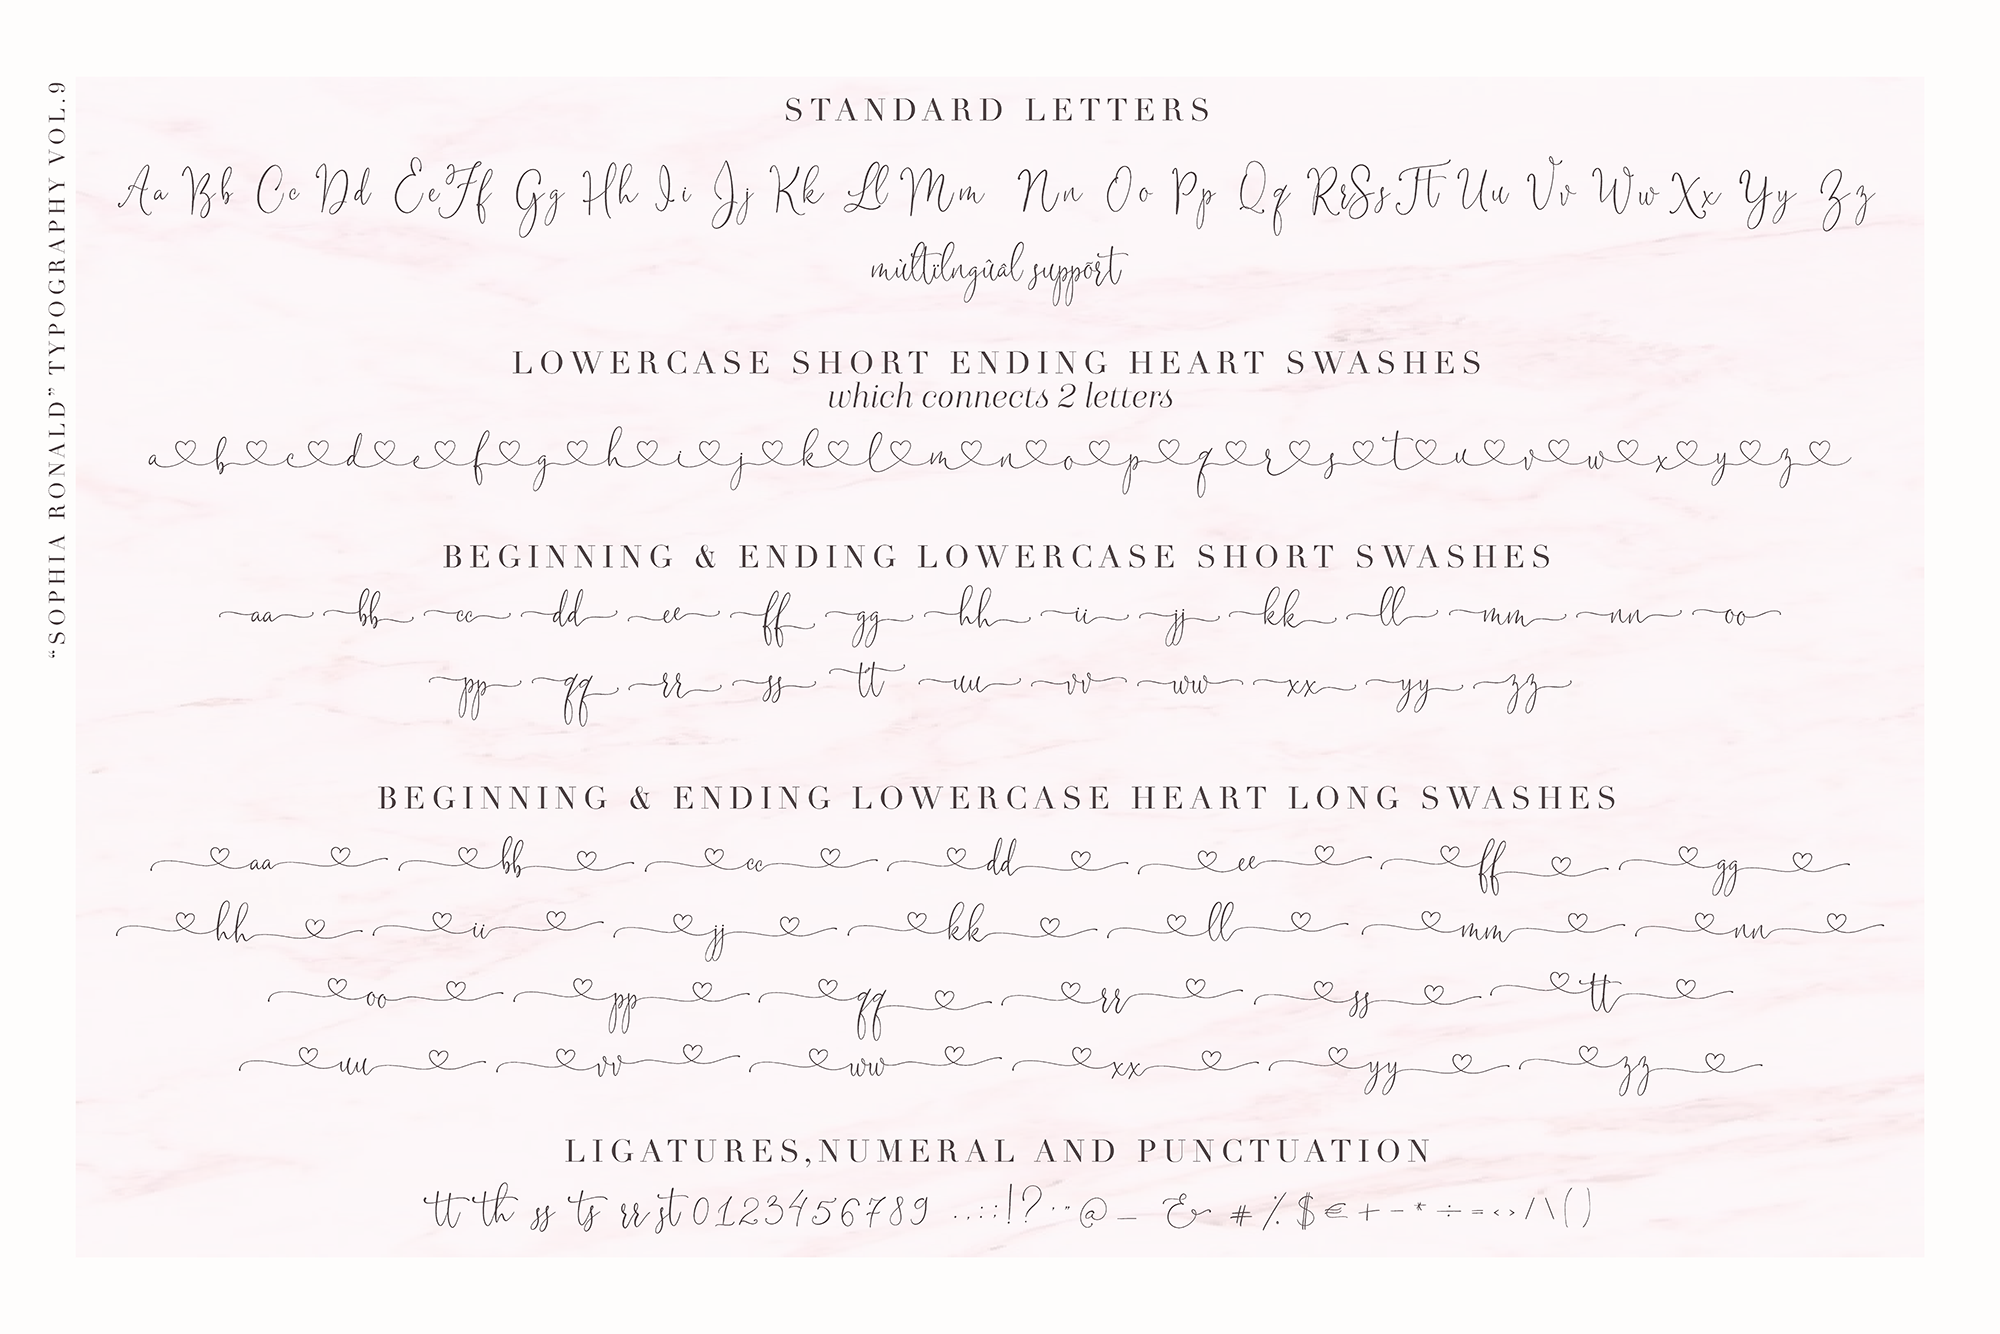 “SOPHIA RONALD” TYPOGRAPHY VOL.9
STANDARD LETTERS
Aa Bb Cc Dd Ee Ff Gg Hh Ii Jj Kk Ll Mm Nn Oo Pp Qq Rr Ss Tt Uu Vv Ww Xx Yy Zz
mùltîlngûâl suppõrt
LOWERCASE SHORT ENDING HEART SWASHES
which connects 2 letters
a♡b♡c♡d♡e♡f♡g♡h♡i♡j♡k♡l♡m♡n♡o♡p♡q♡r♡s♡t♡u♡v♡w♡x♡y♡z♡
BEGINNING & ENDING LOWERCASE SHORT SWASHES
aa bb cc dd ee ff gg hh ii jj kk ll mm nn oo
pp qq rr ss tt uu vv ww xx yy zz
BEGINNING & ENDING LOWERCASE HEART LONG SWASHES
♡aa♡ ♡bb♡ ♡cc♡ ♡dd♡ ♡ee♡ ♡ff♡ ♡gg♡
♡hh♡ ♡ii♡ ♡jj♡ ♡kk♡ ♡ll♡ ♡mm♡ ♡nn♡
♡oo♡ ♡pp♡ ♡qq♡ ♡rr♡ ♡ss♡ ♡tt♡
♡uu♡ ♡vv♡ ♡ww♡ ♡xx♡ ♡yy♡ ♡zz♡
LIGATURES,NUMERAL AND PUNCTUATION
tt th ss ts rr st 0123456789 .,:;!? '" @ _ & # % $ € + - * ÷ = < > / \ ( )